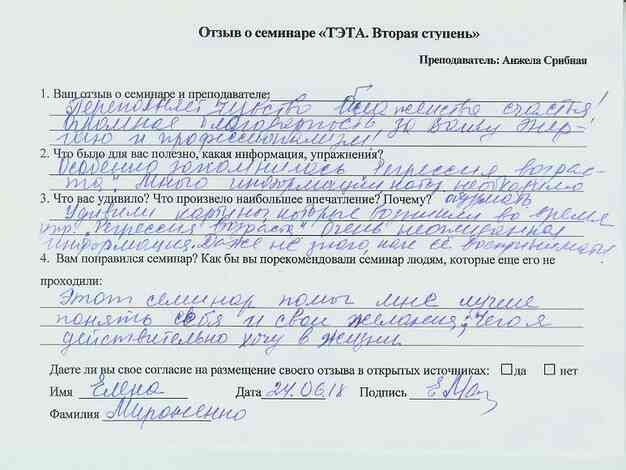 Отзыв о семинаре «ТЭТА. Вторая ступень»
Преподаватель: Анжела Срибная
1. Ваш отзыв о семинаре и преподавателе:
Переполняет чувство блаженства счастья!
Огромная благодарность за вашу энер-
гию и профессионализм
2. Что было для вас полезно, какая информация, упражнения?
Особенно запомнилась "Регрессия возрас-
та". Много информации необходимо
3. Что вас удивило? Что произвело наибольшее впечатление? Почему? обдумать
Удивили картины которые возникли во время
упр. "Регрессия возраста" Очень неожиданная
информация. Даже не знаю, как её воспринимать
4. Вам понравился семинар? Как бы вы порекомендовали семинар людям, которые еще его не
проходили:
Этот семинар помог мне лучше
понять себя и свои желания; чего я
действительно хочу в жизни
Даете ли вы свое согласие на размещение своего отзыва в открытых источниках: да нет
Имя Елена Дата 24.06.18 Подпись
Фамилия Мироненко